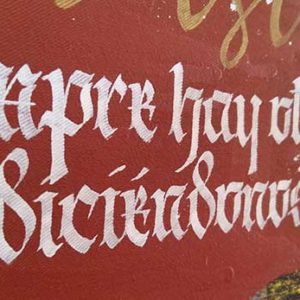 mpre hay ot
diciéndonos